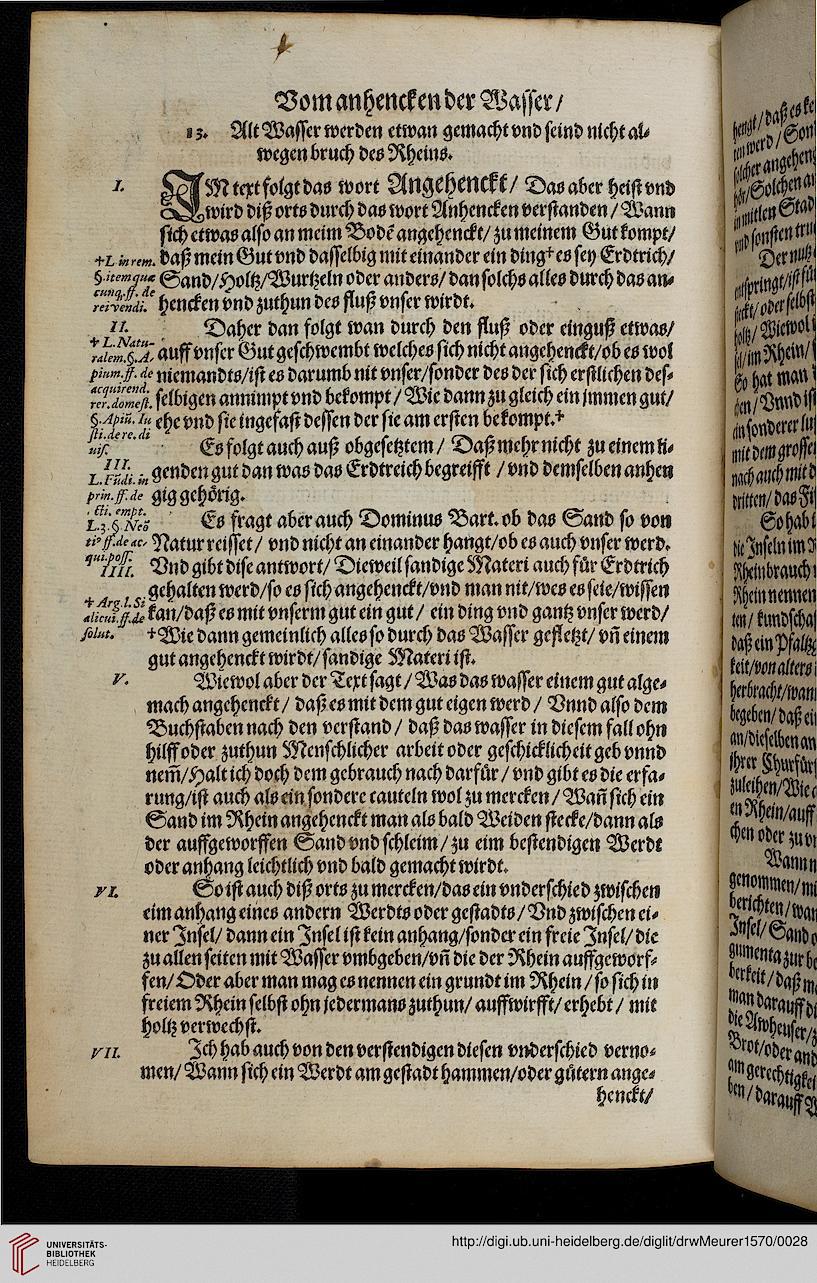 Vom anhencken der Wasser /
13. Alt Wasser werden etwan gemacht vnd seind nicht al⸗
wegen bruch des Rheins.
I.
IM text folgt das wort Angehenckt / Das aber heist vnd
wird diß orts durch das wort Anhencken verstanden / Wann
sich etwas also an meim Bodẽ angehenckt / zu meinem Gut kompt /
daß mein Gut vnd dasselbig mit einander ein ding† es sey Erdtrich /
Sand / Holtz / Wurtzeln oder anders / dan solchs alles durch das an⸗
hencken vnd zuthun des fluß vnser wirdt.
†L. in rem.
§. item quæ
cunq́. ff. de
rei vendi.
II.
Daher dan folgt wan durch den fluß oder einguß etwas /
auff vnser Gut geschwembt welches sich nicht angehenckt / ob es wol
niemandts / ist es darumb nit vnser / sonder des der sich erstlichen des⸗
selbigen annimpt vnd bekompt / Wie dann zu gleich ein jmmen gut /
ehe vnd sie ingefast dessen der sie am ersten bekompt.†
† L. Natu-
ralem. §. A-
pium. ff. de
acquirend.
rer. domest.
§. Apiũ. In
sti. de re. di
uis.
Es folgt auch auß obgesetztem / Daß mehr nicht zu einem li⸗
genden gut dan was das Erdtreich begreifft / vnd demselben anhen
gig gehörig.
III.
L. Fũdi. in
prin. ff. de
cti. empt.
Es fragt aber auch Dominus Bart. ob das Sand so von
Natur reisset / vnd nicht an einander hangt / ob es auch vnser werd.
Vnd gibt dise antwort / Dieweil sandige Materi auch für Erdtrich
gehalten werd / so es sich angehenckt / vnd man nit / wes es seie / wissen
kan / daß es mit vnserm gut ein gut / ein ding vnd gantz vnser werd /
†Wie dann gemeinlich alles so durch das Wasser gefletzt / vñ einem
gut angehenckt wirdt / sandige Materi ist.
L. 3. §. Neõ
ff. de ac-
qui. poss.
IIII.
† Arg. l. Si
alicui. ff. de
solut.
V.
Wiewol aber der Text sagt / Was das wasser einem gut alge⸗
mach angehenckt / daß es mit dem gut eigen werd / Vnnd also dem
Buchstaben nach den verstand / daß das wasser in diesem fall ohn
hilff oder zuthun Menschlicher arbeit oder geschicklicheit geb vnnd
nem̃ / Halt ich doch dem gebrauch nach darfür / vnd gibt es die erfa⸗
rung / ist auch als ein sondere cauteln wol zu mercken / Wañ sich ein
Sand im Rhein angehenckt man als bald Weiden stecke / dann als
der auffgeworffen Sand vnd schleim / zu eim bestendigen Werdt
oder anhang leichtlich vnd bald gemacht wirdt.
VI.
So ist auch diß orts zu mercken / das ein vnderschied zwischen
eim anhang eines andern Werdts oder gestadts / Vnd zwischen ei⸗
ner Insel / dann ein Insel ist kein anhang / sonder ein freie Insel / die
zu allen seiten mit Wasser vmbgeben / vñ die der Rhein auffgeworf⸗
fen / Oder aber man mag es nennen ein grundt im Rhein / so sich in
freiem Rhein selbst ohn jedermans zuthun / auffwirfft / erhebt / mit
holtz verwechst.
VII.
Ich hab auch von den verstendigen diesen vnderschied verno⸗
men / Wann sich ein Werdt am gestadt hammen / oder gütern ange⸗
henckt /
UNIVERSITÄTS-
BIBLIOTHEK
HEIDELBERG
http://digi.ub.uni-heidelberg.de/diglit/drwMeurer1570/0028